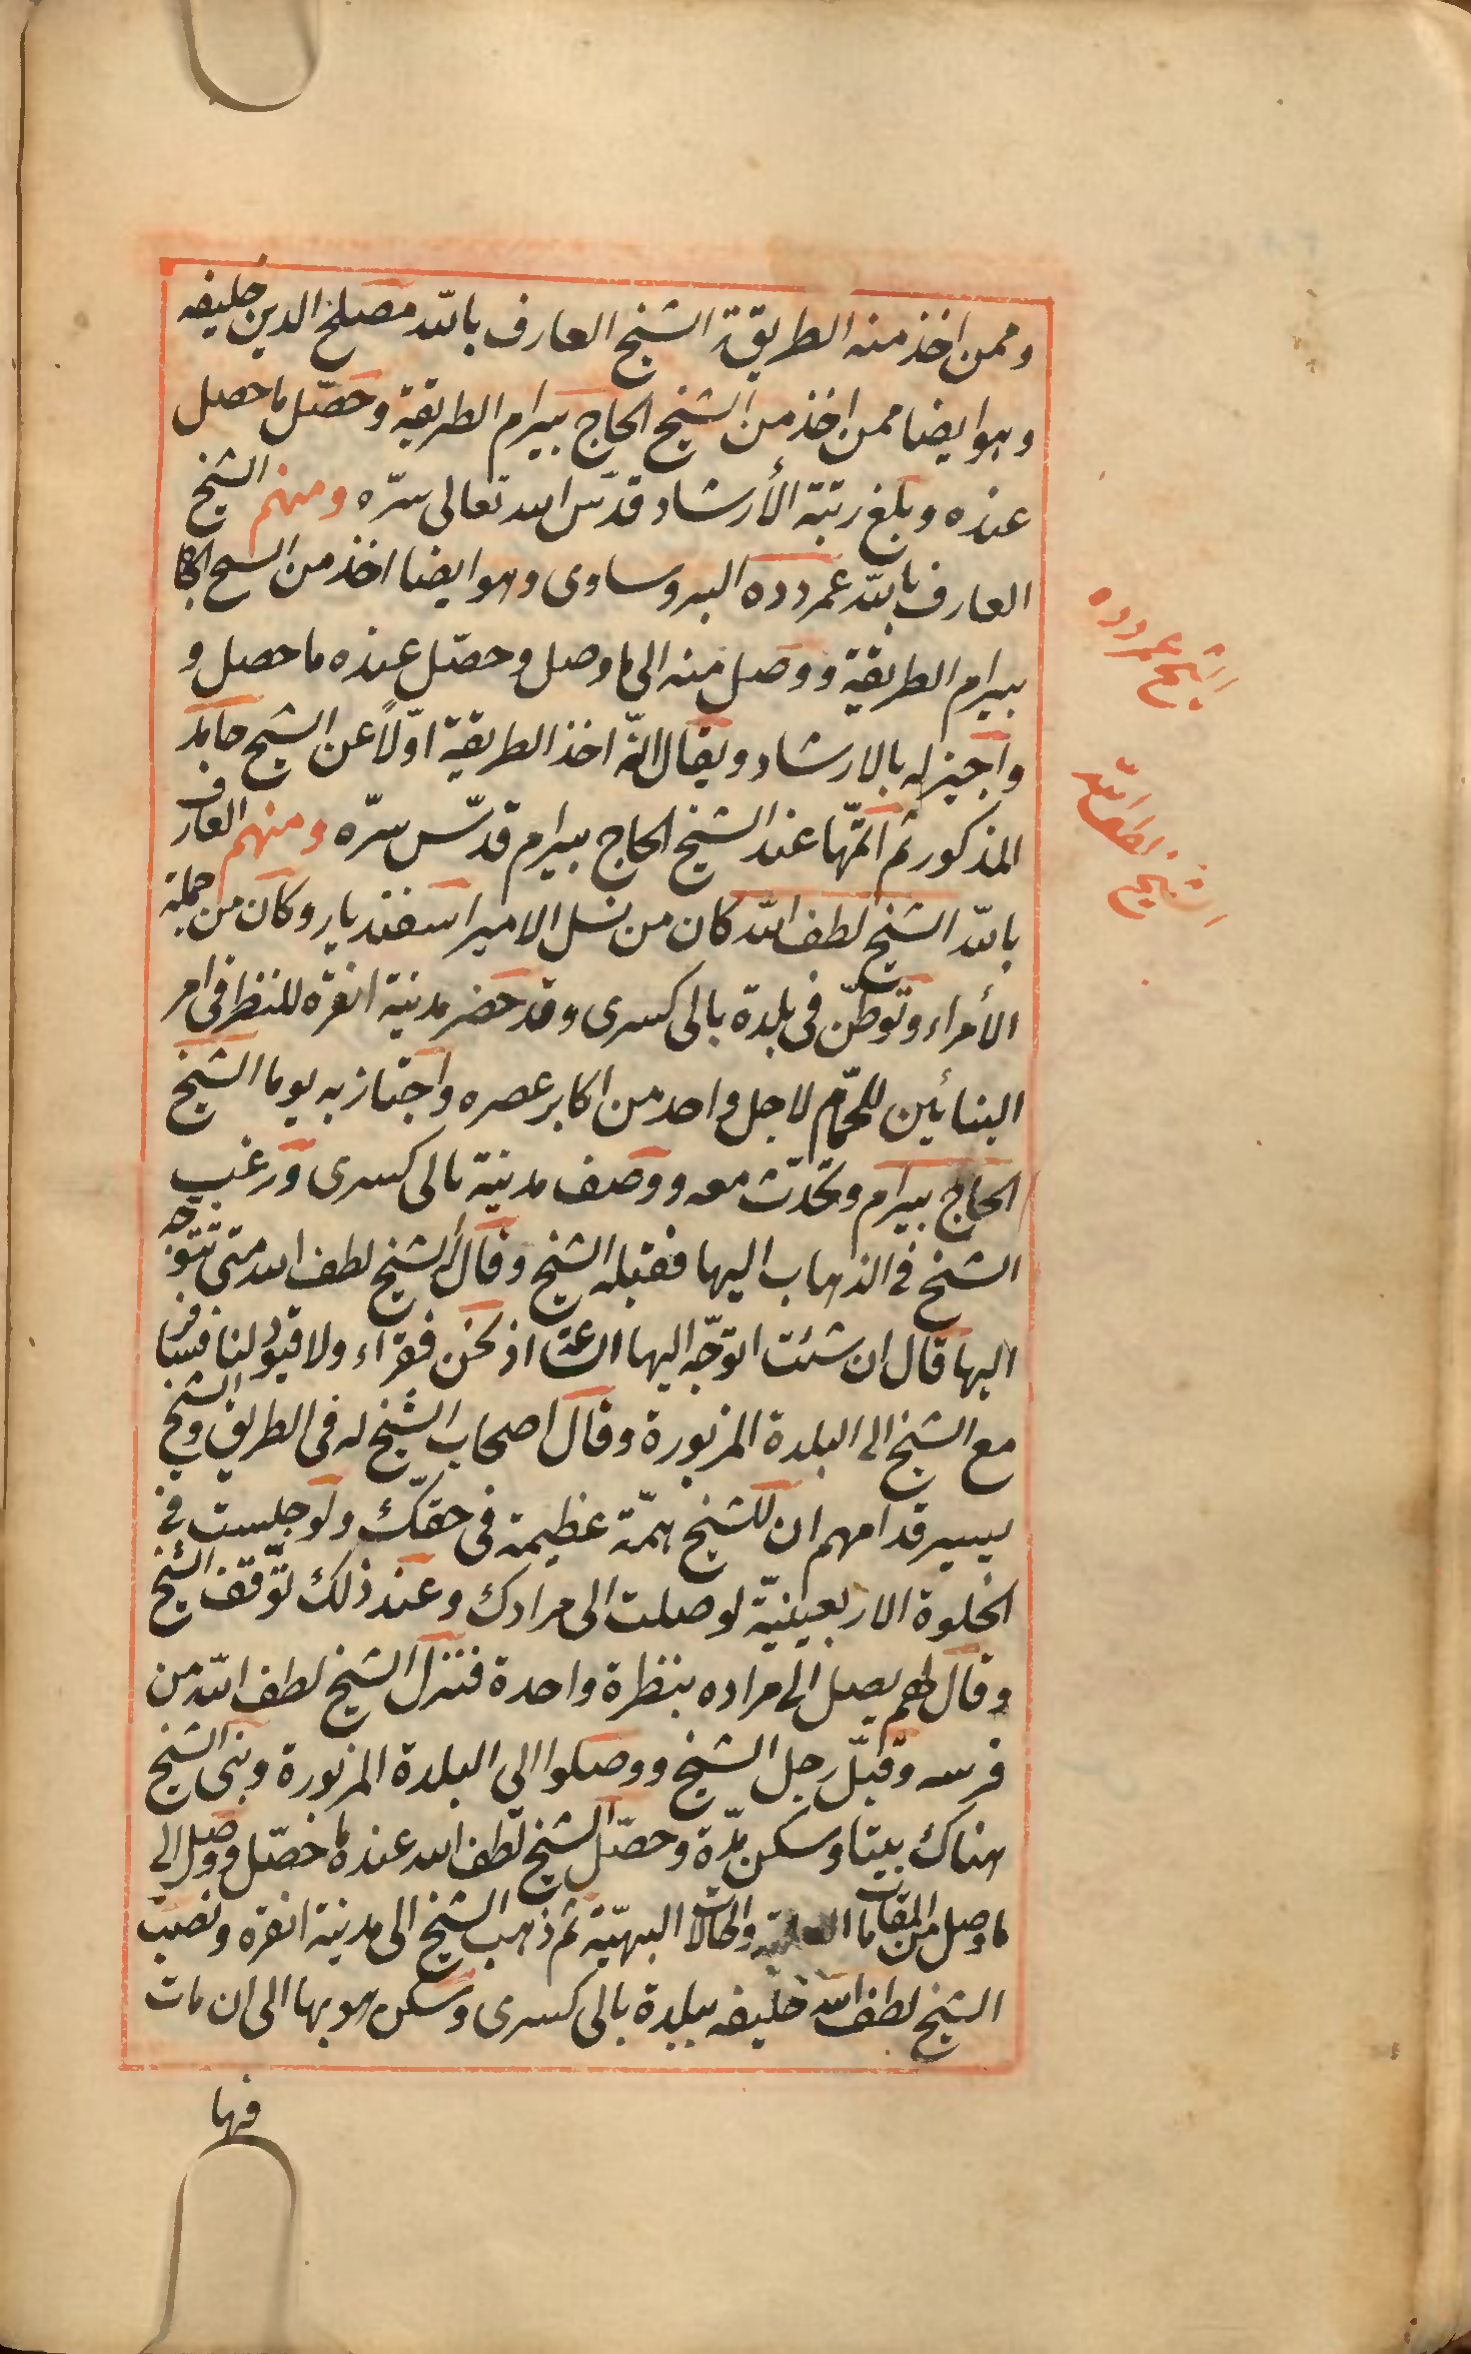 وممن اخذ منه الطريقة الشيخ العارف بالله مصلح الدين خليفه
وهو ايضا ممن اخذ من الشيخ الحاج بيرام الطريقة وحصّل ما حصل
عنده وبلغ رتبة الأرشاد قدّس الله تعالى سرّه ومنهم الشيخ
العارف بالله عمر دده البروساوى وهو ايضا اخذ من الشيخ الحاج
بيرام الطريقة ووصل منه الى ما وصل وحصّل عنده ما حصل و
واجيز له بالارشاد ويقال انّه اخذ الطريقة اوّلاً عن الشيخ حامد
المذكور ثم اتمّها عند الشيخ الحاج بيرام قدّس سرّه ومنهم العارف
بالله الشيخ لطف الله كان من نسل الامير اسفنديار وكان من جملة
الأمراء وتوطّن فى بلدة بالى كسرى وقد حضر مدينة انقره للنظر فى امر
البنائين للحمّام لاجل واحد من اكابر عصره واجتاز به يوما الشيخ
الحاج بيرام وتحدّث معه ووصف مدينة بالى كسرى ورغب
الشيخ فى الذهاب اليها فقبله الشيخ وقال الشيخ لطف الله متى تتوجه
اليها قال ان شئت اتوجّه اليها الساعة اذ نحن فقراء ولا قيود لنا فسافر
مع الشيخ الى البلدة المزبورة وقال اصحاب الشيخ له فى الطريق والشيخ
يسير قدامهم ان للشيخ همّة عظيمة فى حقّك ولو جلست فى
الخلوة الاربعينيّة لوصلت الى مرادك وعند ذلك توّقف الشيخ
وقال لهم يصل الى مراده بنظرة واحدة فنزل الشيخ لطف الله من
فرسه وقبّل رجل الشيخ ووصلوا الى البلدة المزبورة وبنى الشيخ
هناك بيتا وسكن مدّة وحصّل الشيخ لطف الله عنده ما حصّل ووصل الى
ما وصل من المقامات العلية والحالات البهيّة ثم ذهب الشيخ الى مدينة انقره ونصب
الشيخ لطف الله خليفه ببلدة بالى كسرى وسكن هو بها الى ان مات
فيها
الشيخ عمر دده
الشيخ لطف الله